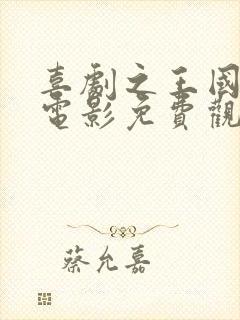 喜劇之王國
電影免費觀
蔡允嘉